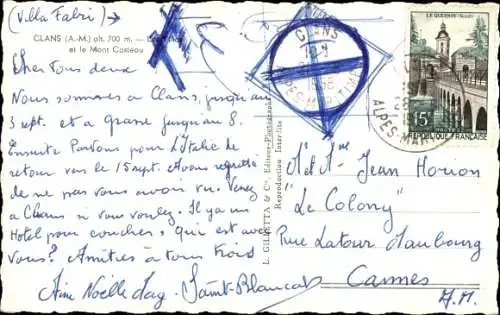 (Villa Fabri) →
CLANS (A.-M.) alt. 700 m. —
et le Mont Casteau
Chers tous deux
Nous sommes à Clans, jusqu'au
3 sept. et à Grasse jusqu'au 8.
Ensuite Partons pour l'Italie de
retour vers le 15 sept. Avons regretté
de ne pas vous avoir vu. Venez
à Clans si vous voulez. Il y a un
Hotel pour coucher, qui est avec
vous? Amitiés à tous trois
Aimé Noëlle Jag. Saint-Blancat
L. GILLETTA & Cie, Editeurs-Photographes
Reproduction Interdite
CLANS
1958
ALPES-MARITIMES
LE QUESNOY (Nord)
15F
REPUBLIQUE FRANÇAISE
ALPES-MARITIMES
M. et Me Jean Horion
"Le Colony"
Rue Latour Maubourg
Cannes
A.M.